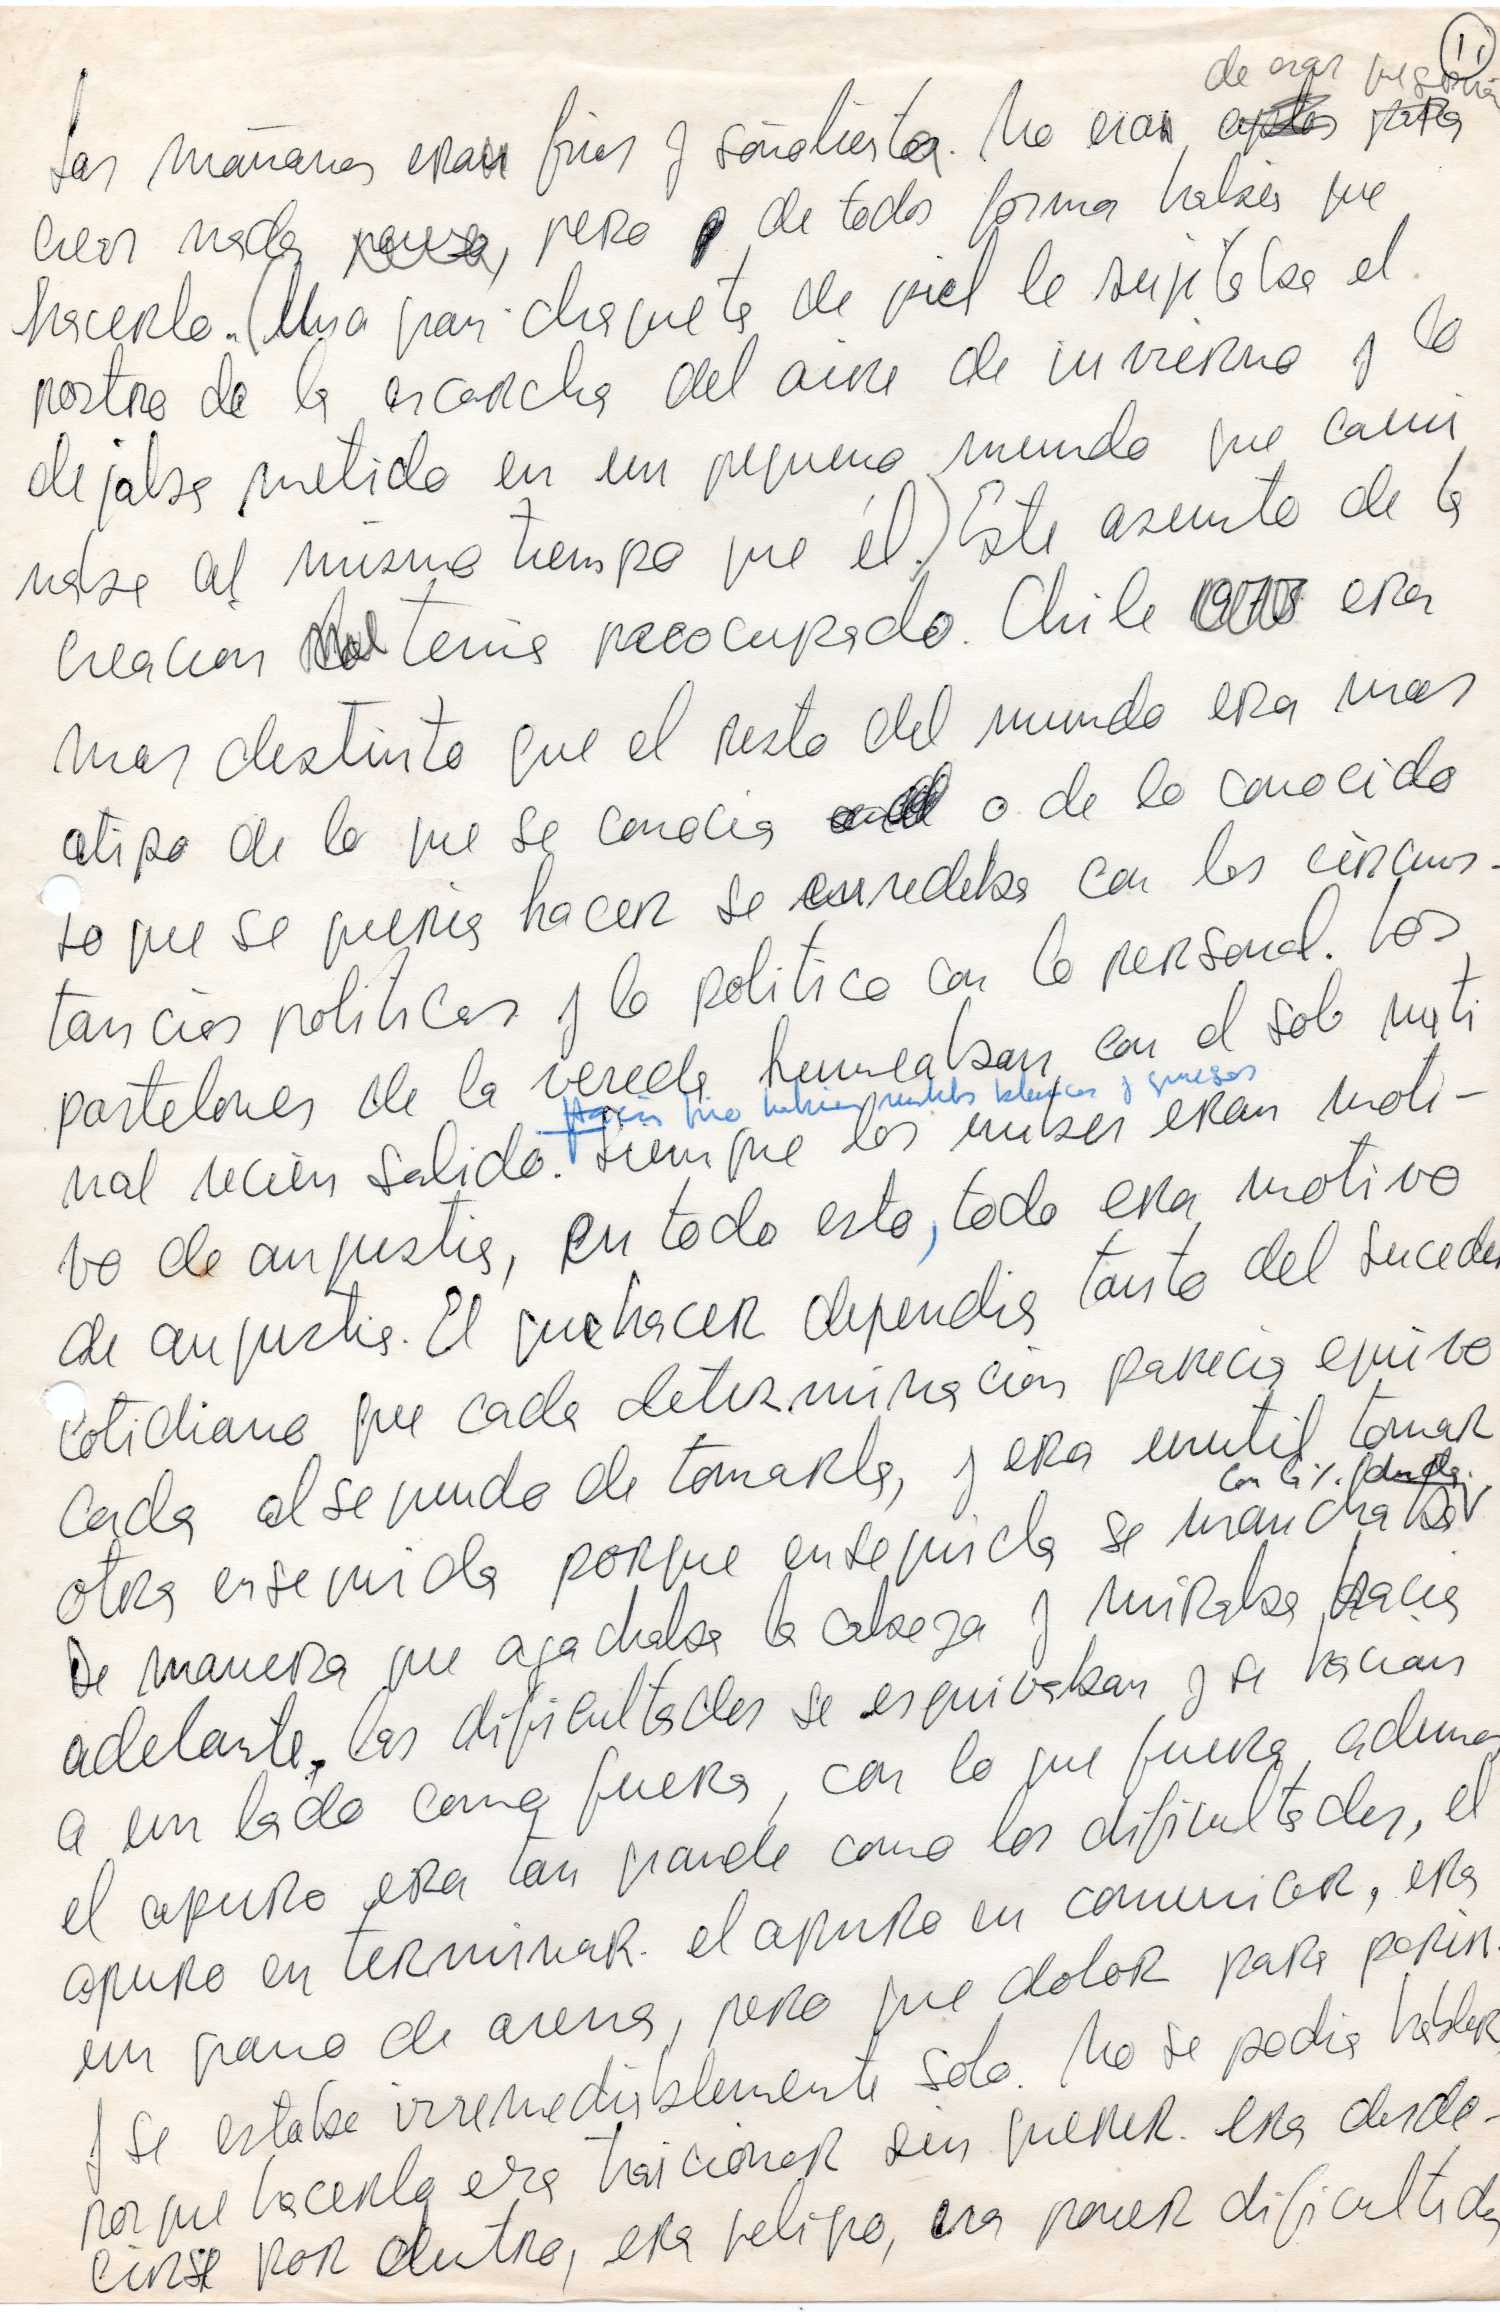 11
de esas
Las mañanas eran frias y soñolientas. No eran aptas para
crear nada nuevo, pero de todas forma habia que
hacerlo. (Una gran chaqueta de piel le sujetaba el
rostro de la escarcha del aire de invierno y lo
dejaba metido en un pequeno mundo que cami
naba al mismo tiempo que él.) Este asunto de la
creacion lo tenia preocupado. Chile 1975 era
mas distinto que el resto del mundo era mas
atipo de lo que se conocia o de lo conocido
lo que se queria hacer se enredaba con las circuns-
tancias politicas y lo politico con lo personal. Los
pastelones de la vereda humeaban con el solo mati
Hacia frio habian nubes blancas y gruesas
nal recien salido. Siempre las nubes eran moti-
vo de angustia, en todo esto, todo era motivo
de angustia. El quehacer dependia tanto del suceder
cotidiano que cada determinación parecia equivo
cada al segundo de tomarla, y era inutil tomar
con la
otra enseguida porque enseguida se manchaba
De manera que agachaba la cabeza y miraba hacia
adelante. Las dificultades se esquivaban y se hacian
a un lado como fuera, con lo que fuera, ademas
el apuro era tan grande como las dificultades, el
apuro en terminar. el apuro en comunicar, era
un grano de arena, pero que dolor para parir.
y se estaba irremediablemente solo. No se podia hablar
porque hacerlo era traicionar sin querer. era desde-
cirse por dentro, era peligro, era poner dificultades